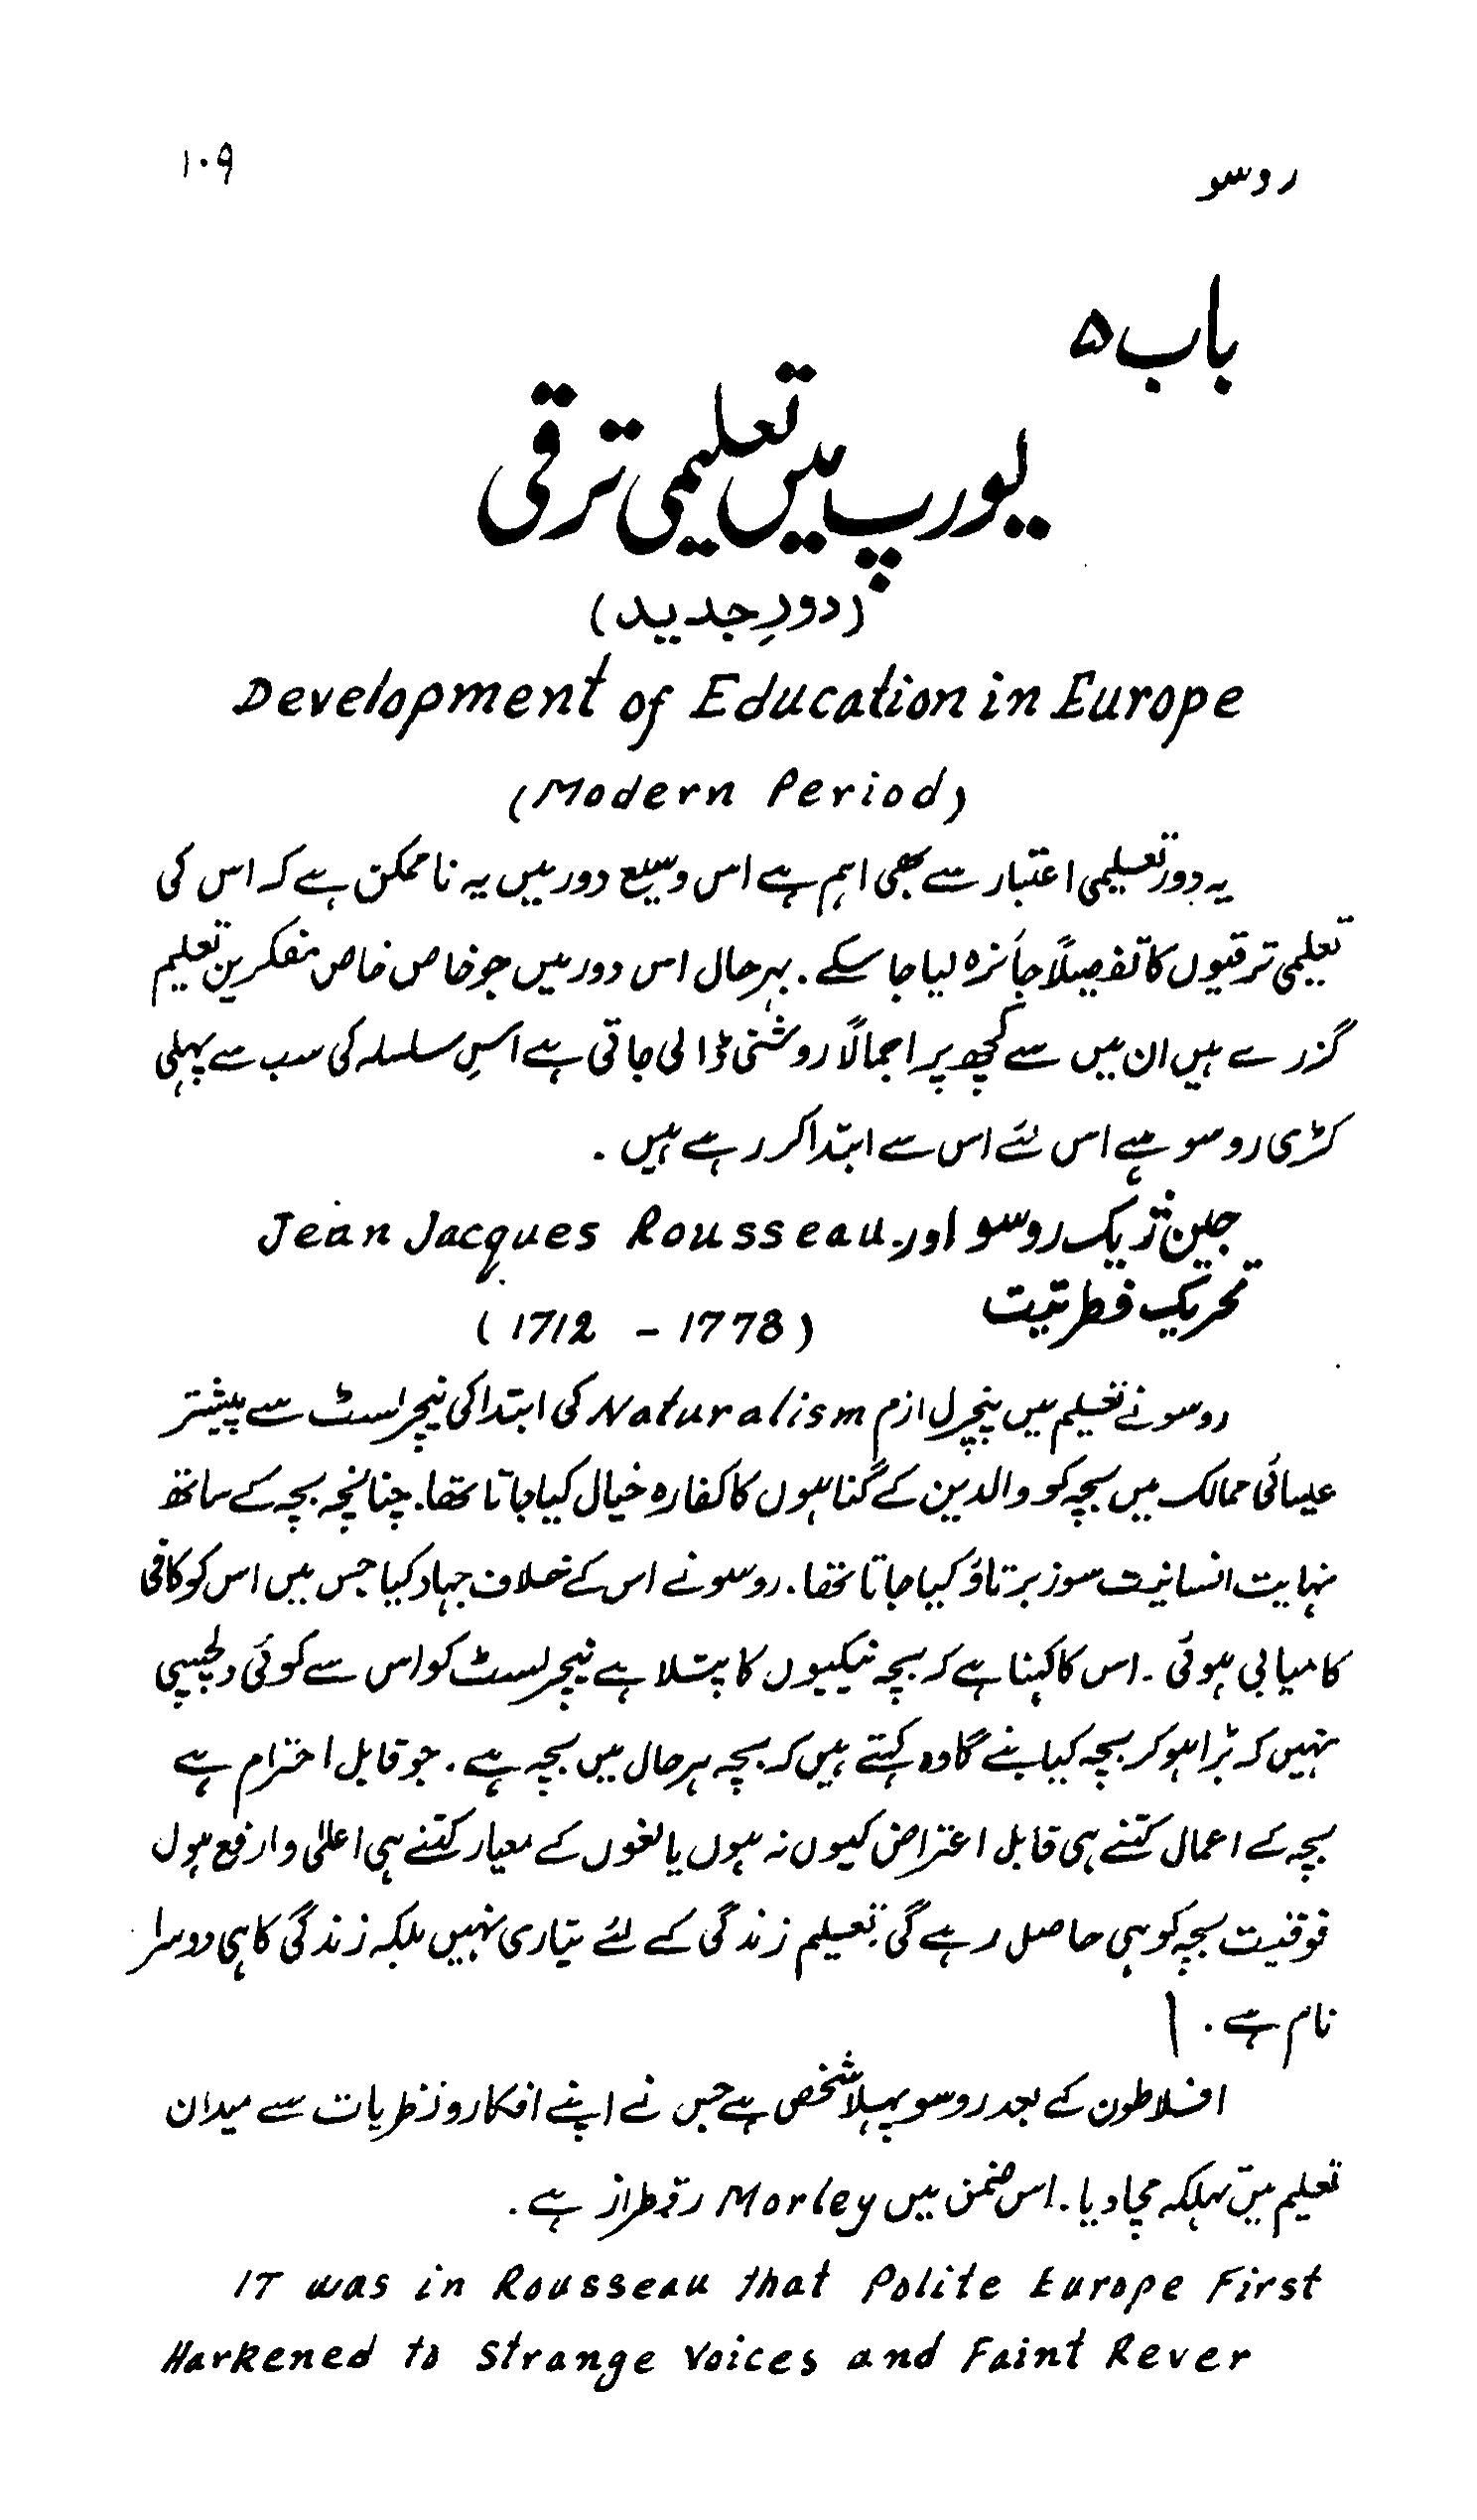 روسو ۱۰۹
باب ۵
یورپ میں تعلیمی ترقی
(دورِ جدید)
Development of Education in Europe
(Modern Period)
یہ دور تعلیمی اعتبار سے بھی اہم ہے اس وسیع دور میں یہ ناممکن ہے کہ اس کی
تعلیمی ترقیوں کا تفصیلاً جائزہ لیا جا سکے۔ بہرحال اس دور میں جو خاص خاص مفکرین تعلیم
گزرے ہیں ان میں سے کچھ پر اجمالاً روشنی ڈالی جاتی ہے اس سلسلہ کی سب سے پہلی
کڑی روسو ہے اس لئے اس سے ابتدا کر رہے ہیں۔
جین ژیک روسو اور Jean Jacques Rousseau
تحریک فطرتیت (1712 - 1778)
روسو نے تعلیم میں نیچرل ازم Naturalism کی ابتدا کی نیچرلسٹ سے پیشتر
عیسائی ممالک میں بچہ کو والدین کے گناہوں کا کفارہ خیال کیا جاتا تھا۔ چنانچہ بچہ کے ساتھ
نہایت انسانیت سوز برتاؤ کیا جاتا تھا۔ روسو نے اس کے خلاف جہاد کیا جس میں اس کو کافی
کامیابی ہوئی۔ اس کا کہنا ہے کہ بچہ نیکیوں کا پتلا ہے نیچرلسٹ کو اس سے کوئی دلچسپی
نہیں کہ بڑا ہو کر بچہ کیا بنے گا وہ کہتے ہیں کہ بچہ ہر حال میں بچہ ہے۔ جو قابل احترام ہے
بچہ کے اعمال کتنے ہی قابل اعتراض کیوں نہ ہوں بالغوں کے معیار کتنے ہی اعلیٰ و ارفع ہوں
فوقیت بچہ کو ہی حاصل رہے گی۔ تعلیم زندگی کے لئے تیاری نہیں بلکہ زندگی کا ہی دوسرا
نام ہے۔
افلاطون کے بعد روسو پہلا شخص ہے جس نے اپنے افکار و نظریات سے میدان
تعلیم میں تہلکہ مچا دیا۔ اس ضمن میں Morley رقمطراز ہے۔
IT was in Rousseau that Polite Europe First
Harkened to Strange Voices and Faint Rever